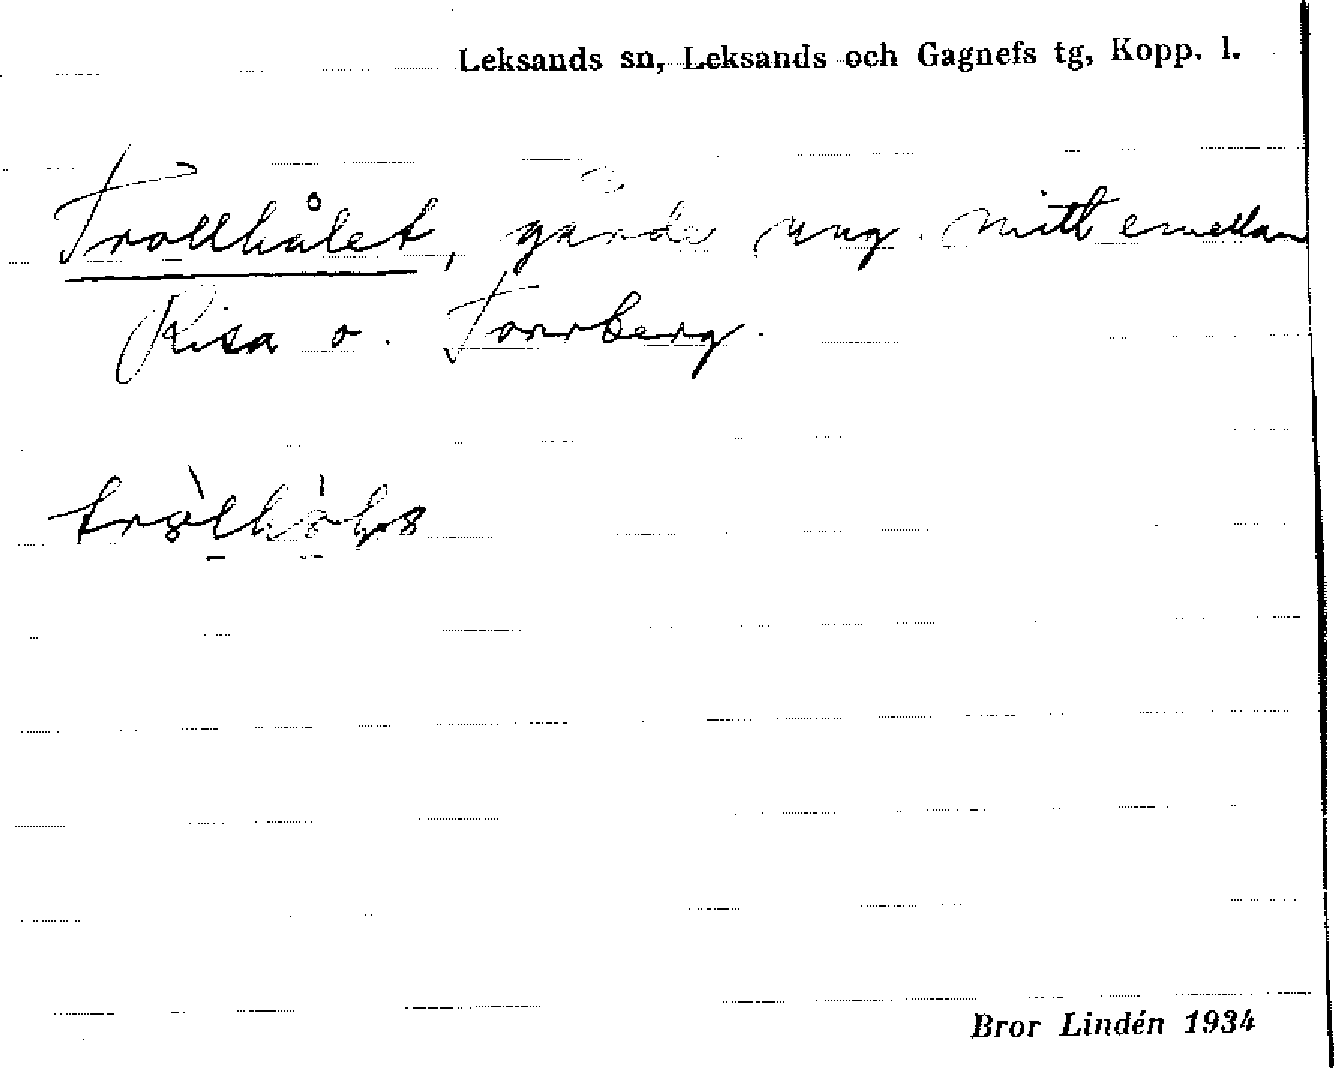 Leksands sn, Leksands och Gagnefs tg, Kopp. l.
Trollhålet, gärde ung. mitt emellan
Risa o. Torrberg.
Bror Lindén 1934